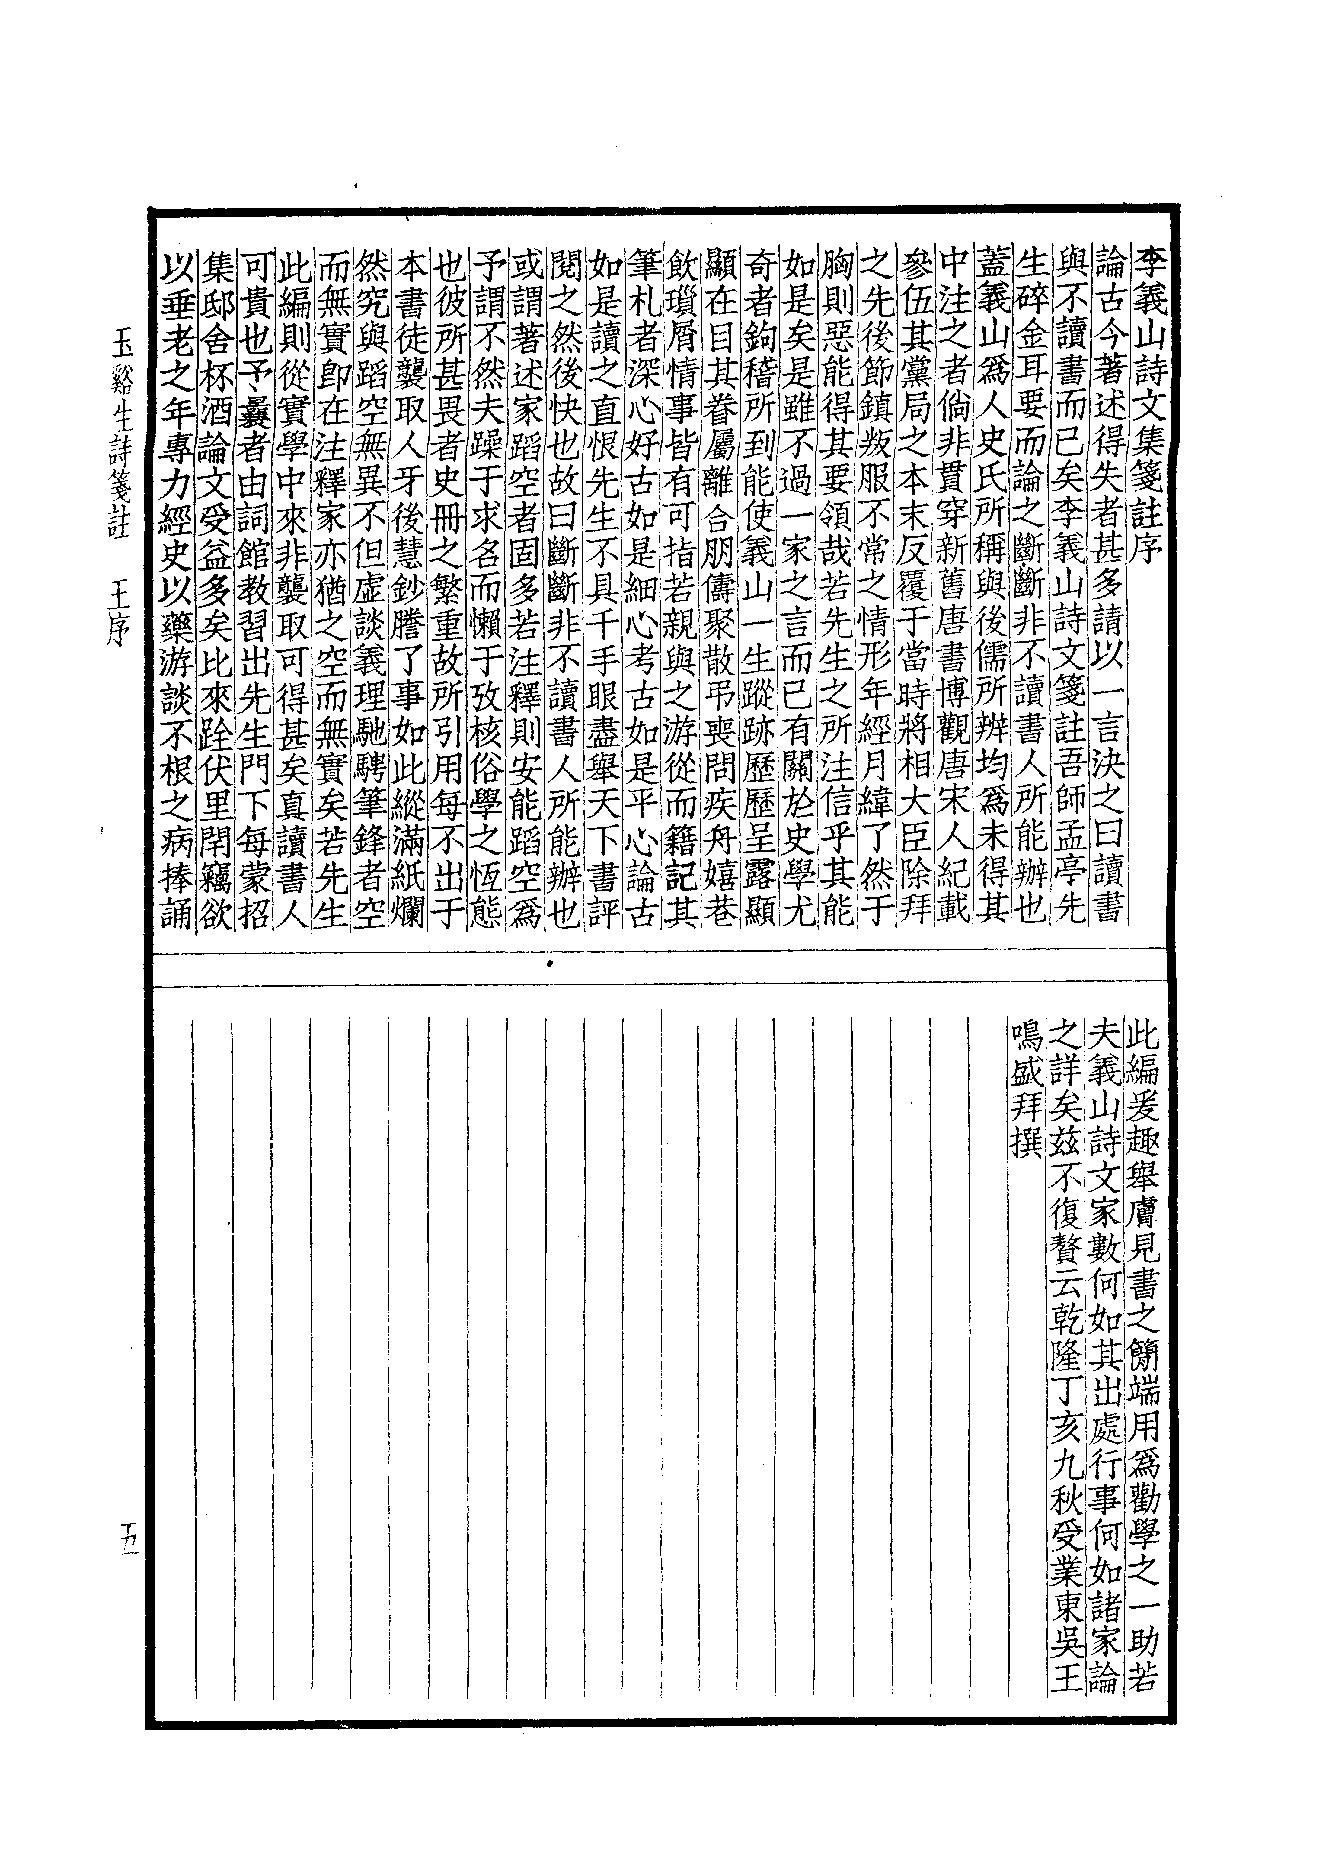 李義山詩文集箋註序
論古今著述得失者甚多請以一言決之曰讀書
與不讀書而已矣李義山詩文箋註吾師孟亭先
生碎金耳要而論之斷斷非不讀書人所能辦也
蓋義山爲人史氏所稱與後儒所辨均爲未得其
中注之者倘非貫穿新舊唐書博觀唐宋人紀載
參伍其黨局之本末反覆于當時將相大臣除拜
之先後節鎮叛服不常之情形年經月緯了然于
胸則惡能得其要領哉若先生之所注信乎其能
如是矣是雖不過一家之言而已有關於史學尤
奇者鉤稽所到能使義山一生蹤跡歷歷呈露顯
顯在目其眷屬離合朋儔聚散弔喪問疾舟嬉巷
飲瑣屑情事皆有可指若親與之游從而籍記其
筆札者深心好古如是細心考古如是平心論古
如是讀之直恨先生不具千手眼盡舉天下書評
閱之然後快也故曰斷斷非不讀書人所能辦也
或謂著述家蹈空者固多若注釋則安能蹈空爲
予謂不然夫躁于求名而懶于攷核俗學之恆態
也彼所甚畏者史冊之繁重故所引用每不出于
本書徒襲取人牙後慧鈔謄了事如此縱滿紙爛
然究與蹈空無異不但虛談義理馳騁筆鋒者空
而無實即在注釋家亦猶之空而無實矣若先生
此編則從實學中來非襲取可得甚矣真讀書人
可貴也予曩者由詞館教習出先生門下每蒙招
集邸舍杯酒論文受益多矣比來跧伏里閈竊欲
以垂老之年專力經史以藥游談不根之病捧誦
此編爰趣舉膚見書之簡端用爲勸學之一助若
夫義山詩文家數何如其出處行事何如諸家論
之詳矣茲不復贅云乾隆丁亥九秋受業東吳王
鳴盛拜撰
玉谿生詩箋註 王序
五